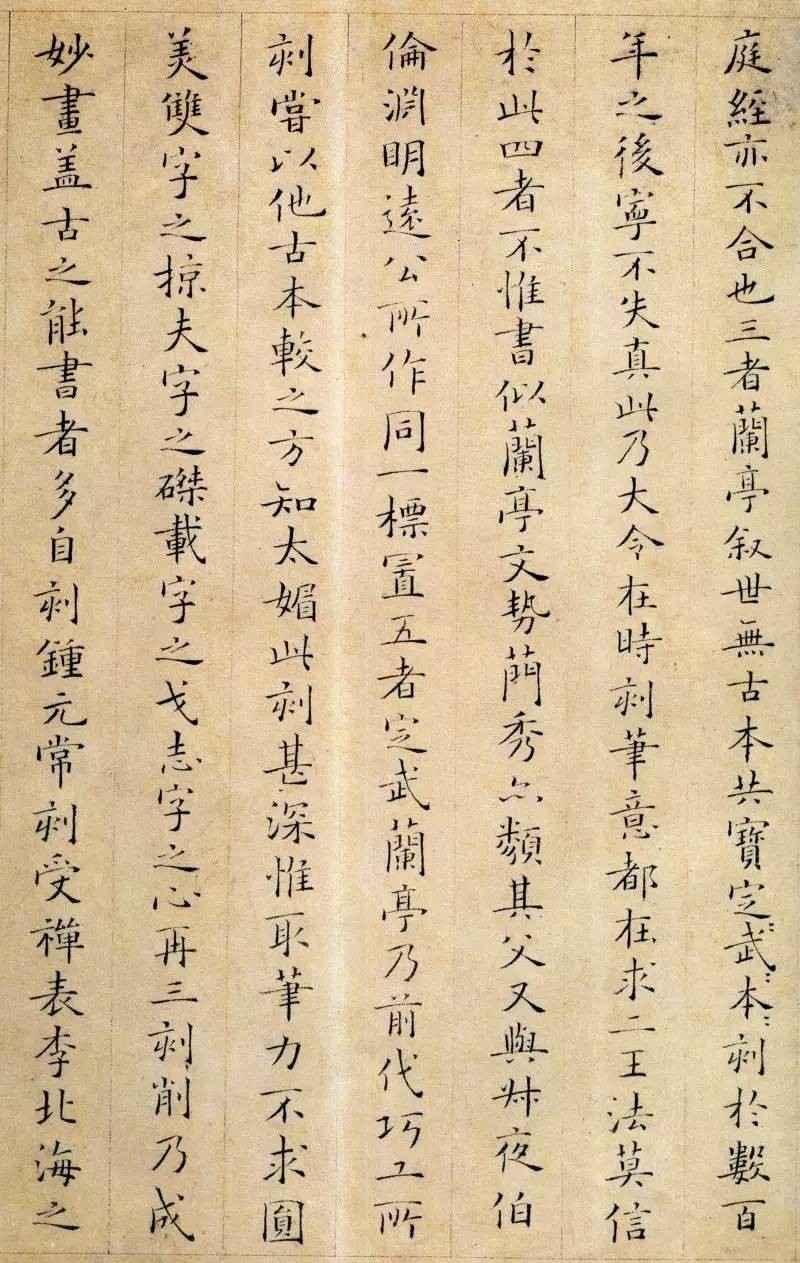 庭經亦不合也三者蘭亭叙世無古本共寶定武本刻於數百
年之後寧不失真此乃大令在時刻筆意都在求二王法莫信
於此四者不惟書似蘭亭文勢蕳秀亦類其父又與叔夜伯
倫淵明遠公所作同一標置五者定武蘭亭乃前代巧工所
刻嘗以他古本較之方知太媚此刻甚深惟取筆力不求圓
美雙字之掠夫字之磔載字之戈志字之心再三刻削乃成
妙畫盖古之能書者多自刻鍾元常刻受禅表李北海之